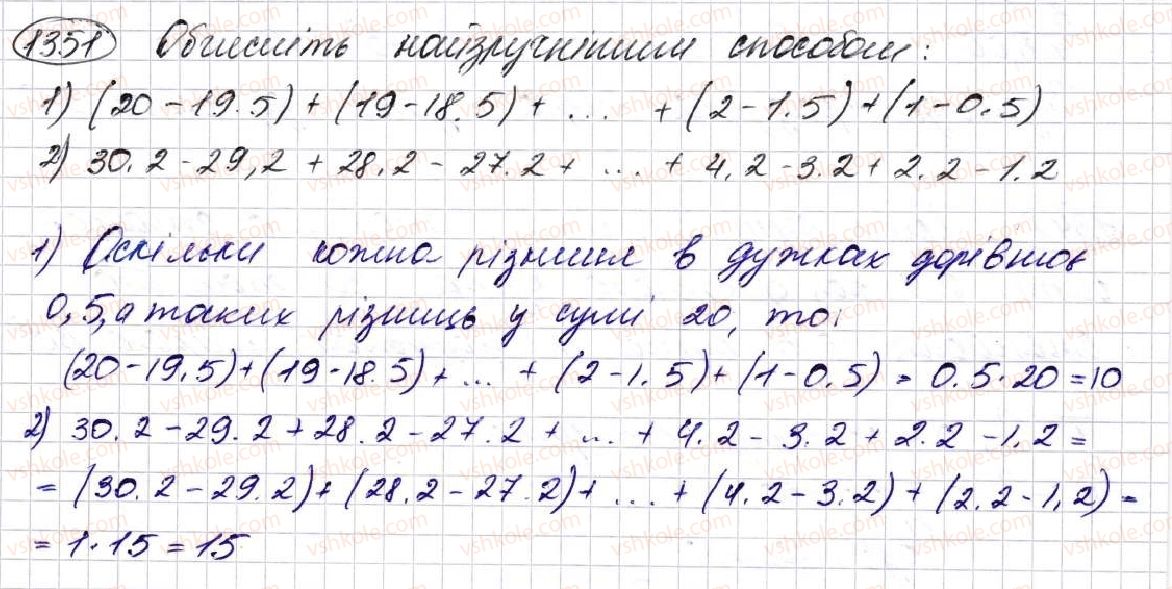 1351 Обчисліть найзручнішим способом:
1) (20 - 19.5) + (19 - 18.5) + ... + (2 - 1.5) + (1 - 0.5)
2) 30.2 - 29,2 + 28.2 - 27.2 + ... + 4.2 - 3.2 + 2.2 - 1.2
1) Оскільки кожна різниця в дужках дорівнює
0,5, а таких різниць у сумі 20, то:
(20 - 19,5) + (19 - 18.5) + ... + (2 - 1.5) + (1 - 0.5) = 0.5 · 20 = 10
2) 30.2 - 29.2 + 28.2 - 27.2 + ... + 4.2 - 3.2 + 2.2 - 1,2 =
= (30.2 - 29.2) + (28,2 - 27.2) + ... + (4.2 - 3.2) + (2.2 - 1,2) =
= 1 · 15 = 15